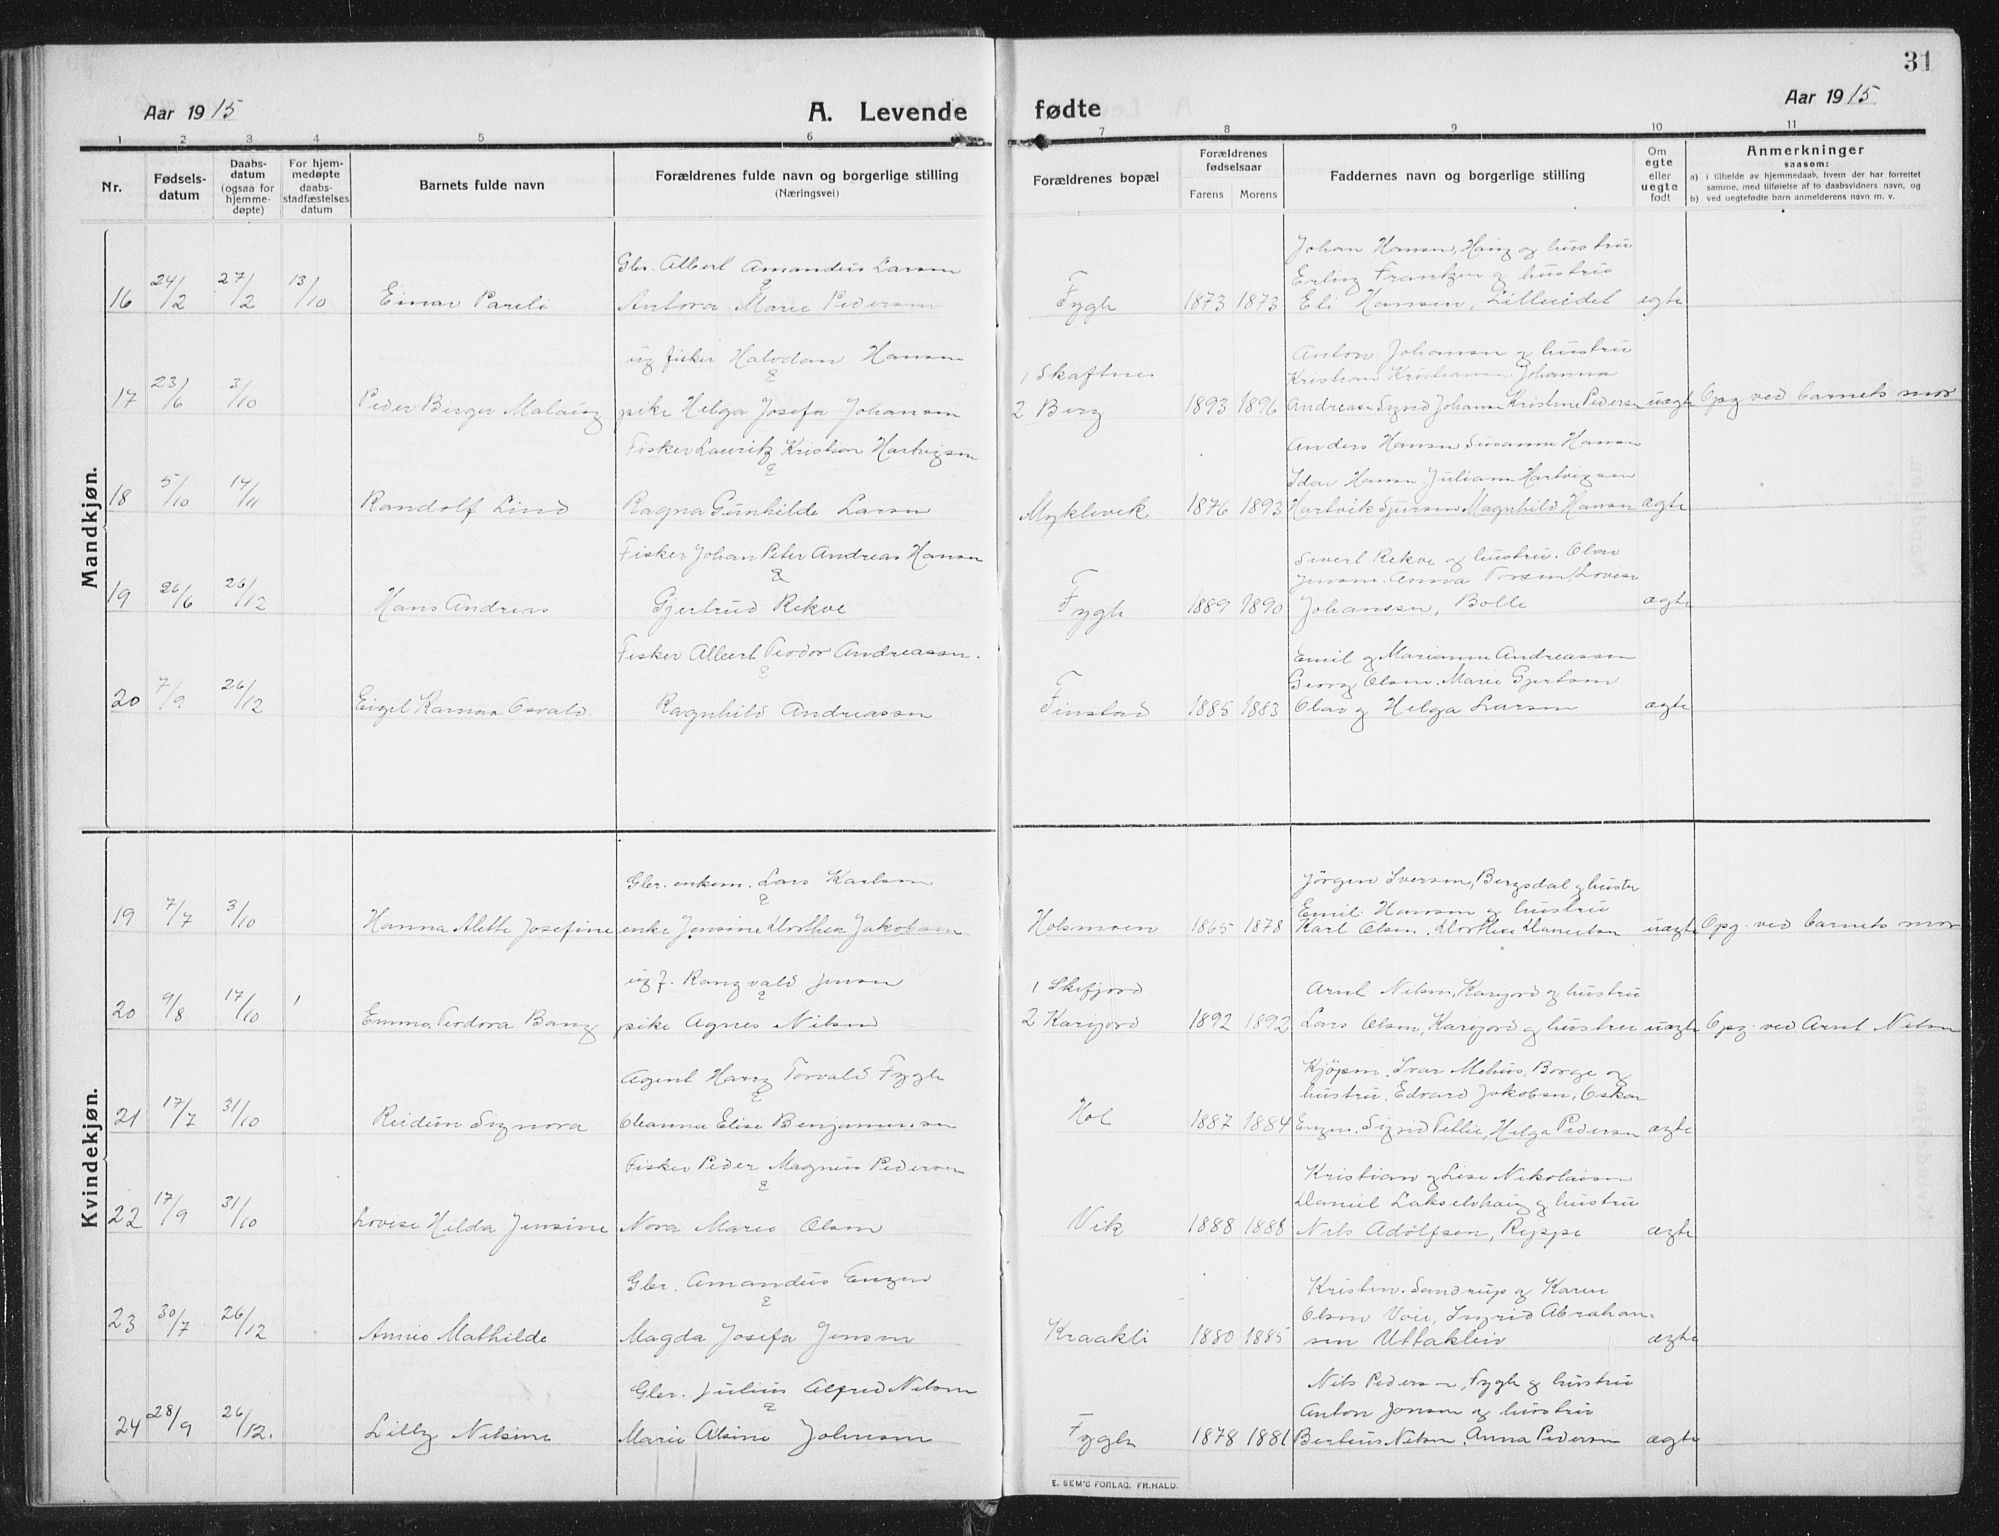 31
Aar 1915
A. Levende fødte
Aar 1915
1 2 3 4 5 6 7 8 9 10 11
Nr.
Fødsels-
datum
Daabs-
datum
(ogsaa for
hjemme-
døpte)
For hjem-
medøpte
daabs-
stadfæstelses
datum
Barnets fulde navn
Forældrenes fulde navn og borgerlige stilling
(Næringsvei)
Forældrenes bopæl
Forældrenes
fødselsaar
Farens Morens
Faddernes navn og borgerlige stilling
Om
egte
eller
uegte
født
Anmerkninger
saasom:
a) i tilfælde av hjemmedaab, hvem der har forrettet
samme, med tilføielse af to daabsvidners navn, og
b) ved uegtefødte barn anmelderens navn m. v.
Mandkjøn.
Gbr. Albert Amandus Larsen
&
16 24/2 27/2 13/10 Einar Pareli Antora Marie Pedersen
Fygle 1873 1873
Johan Hansen, Haug og hustru
Erling Frantzen og hustru
Eli Hansen, Lilleeidet egte
ug fisker Halvdan Hansen
&
17 23/6 3/10 Peder Birger Malaug pike Helga Josefa Johansen
1 Skaftnes
2 Berg 1893 1896
Anton Johansen og hustru
Kristian Kristiansen Johanna
Andreasen Sigrid Johansen Kristine Pedersen uægte Opg ved barnets mor
Fisker Lauritz Kristian Hartvigsen
&
18 5/10 14/11 Randolf Lind Ragna Gunhilde Larsen
Myklevik 1876 1893
Anders Hansen Susanne Hansen
Idar Hansen Juliane Hartvigsen
Hartvik Sjursen Magnhild Hansen ægte
Fisker Johan Peter Andreas Hansen
&
19 26/6 26/12 Hans Andreas Gjertrud Rekve
Fygle 1889 1890
Sivert Rekve og hustru. Olav
Jensen. Anna Torsen Lovise
Johanssen, Bolle ægte
Fisker Albert Teodor Andreassen.
&
20 7/9 26/12 Eigel Osvald. Ragnhild Andreassen
Finstad 1885 1883
Emil og Marianne Andreassen
Georg Olsen. Marie Gjertsen
Olav og Helga Larsen ægte
Kvindekjøn.
Gbr. enkem. Lars Karlsen
&
19 7/7 3/10 Hanna Alette Josefine enke Jensine Dorthea Jakobsen
Holsmoen 1865 1878
Jörgen Iversen, Bergsdal og hustru
Emil Hansen og hustru
Karl Olsen, Dorthea Danielsen uægte Opg. ved barnets mor
ug f. Rangvald Jensen
&
20 9/8 17/10 1 Emma Teodora Bang pike Agnes Nilsen
1 Skifjord
2 Karijord 1892 1892
Arnt Nilsen, Karijord og hustru
Lars Olsen, Karijord og hustru uægte Opg. ved Arnt Nilsen
Agent Harry Torvald Fygle
&
21 17/7 31/10 Reidun Signora Oleanna Elise Benjaminsen
Hol 1887 1884
Kjöpm. Ivar Mehus, Borge og
hustru. Edvard Jakobsen, Oskar
Engen. Sigrid Helga Pedersen ægte
Fisker Peder Magnus Pedersen
&
22 17/9 31/10 Lovise Hilda Jensine Nora Marie Olsen
Vik 1888 1888
Kristian og Lise Nikolaisen
Daniel Lakselvhaug og hustru
Nils Adolfsen, Reppe ægte
Gbr. Amandus Engen
&
23 30/7 26/12 Annie Mathilde Magda Josefa Jensen
Kraakli 1880 1885
Kristin Sandrup og Karen
Olsen Voie, Ingrid Abraham-
sen Uttakleiv ægte
Gbr. Julius Alfred Nilsen
&
24 28/9 26/12. Lilly Nilsine Marie Alsine Johnsen
Fygle 1878 1881
Nils Pedersen, Fygle og hustru
Anton Jonsen og hustru
Bertius Nilsen. Anna Pedersen ægte
E. SEM'S FORLAG, FR.HALD.